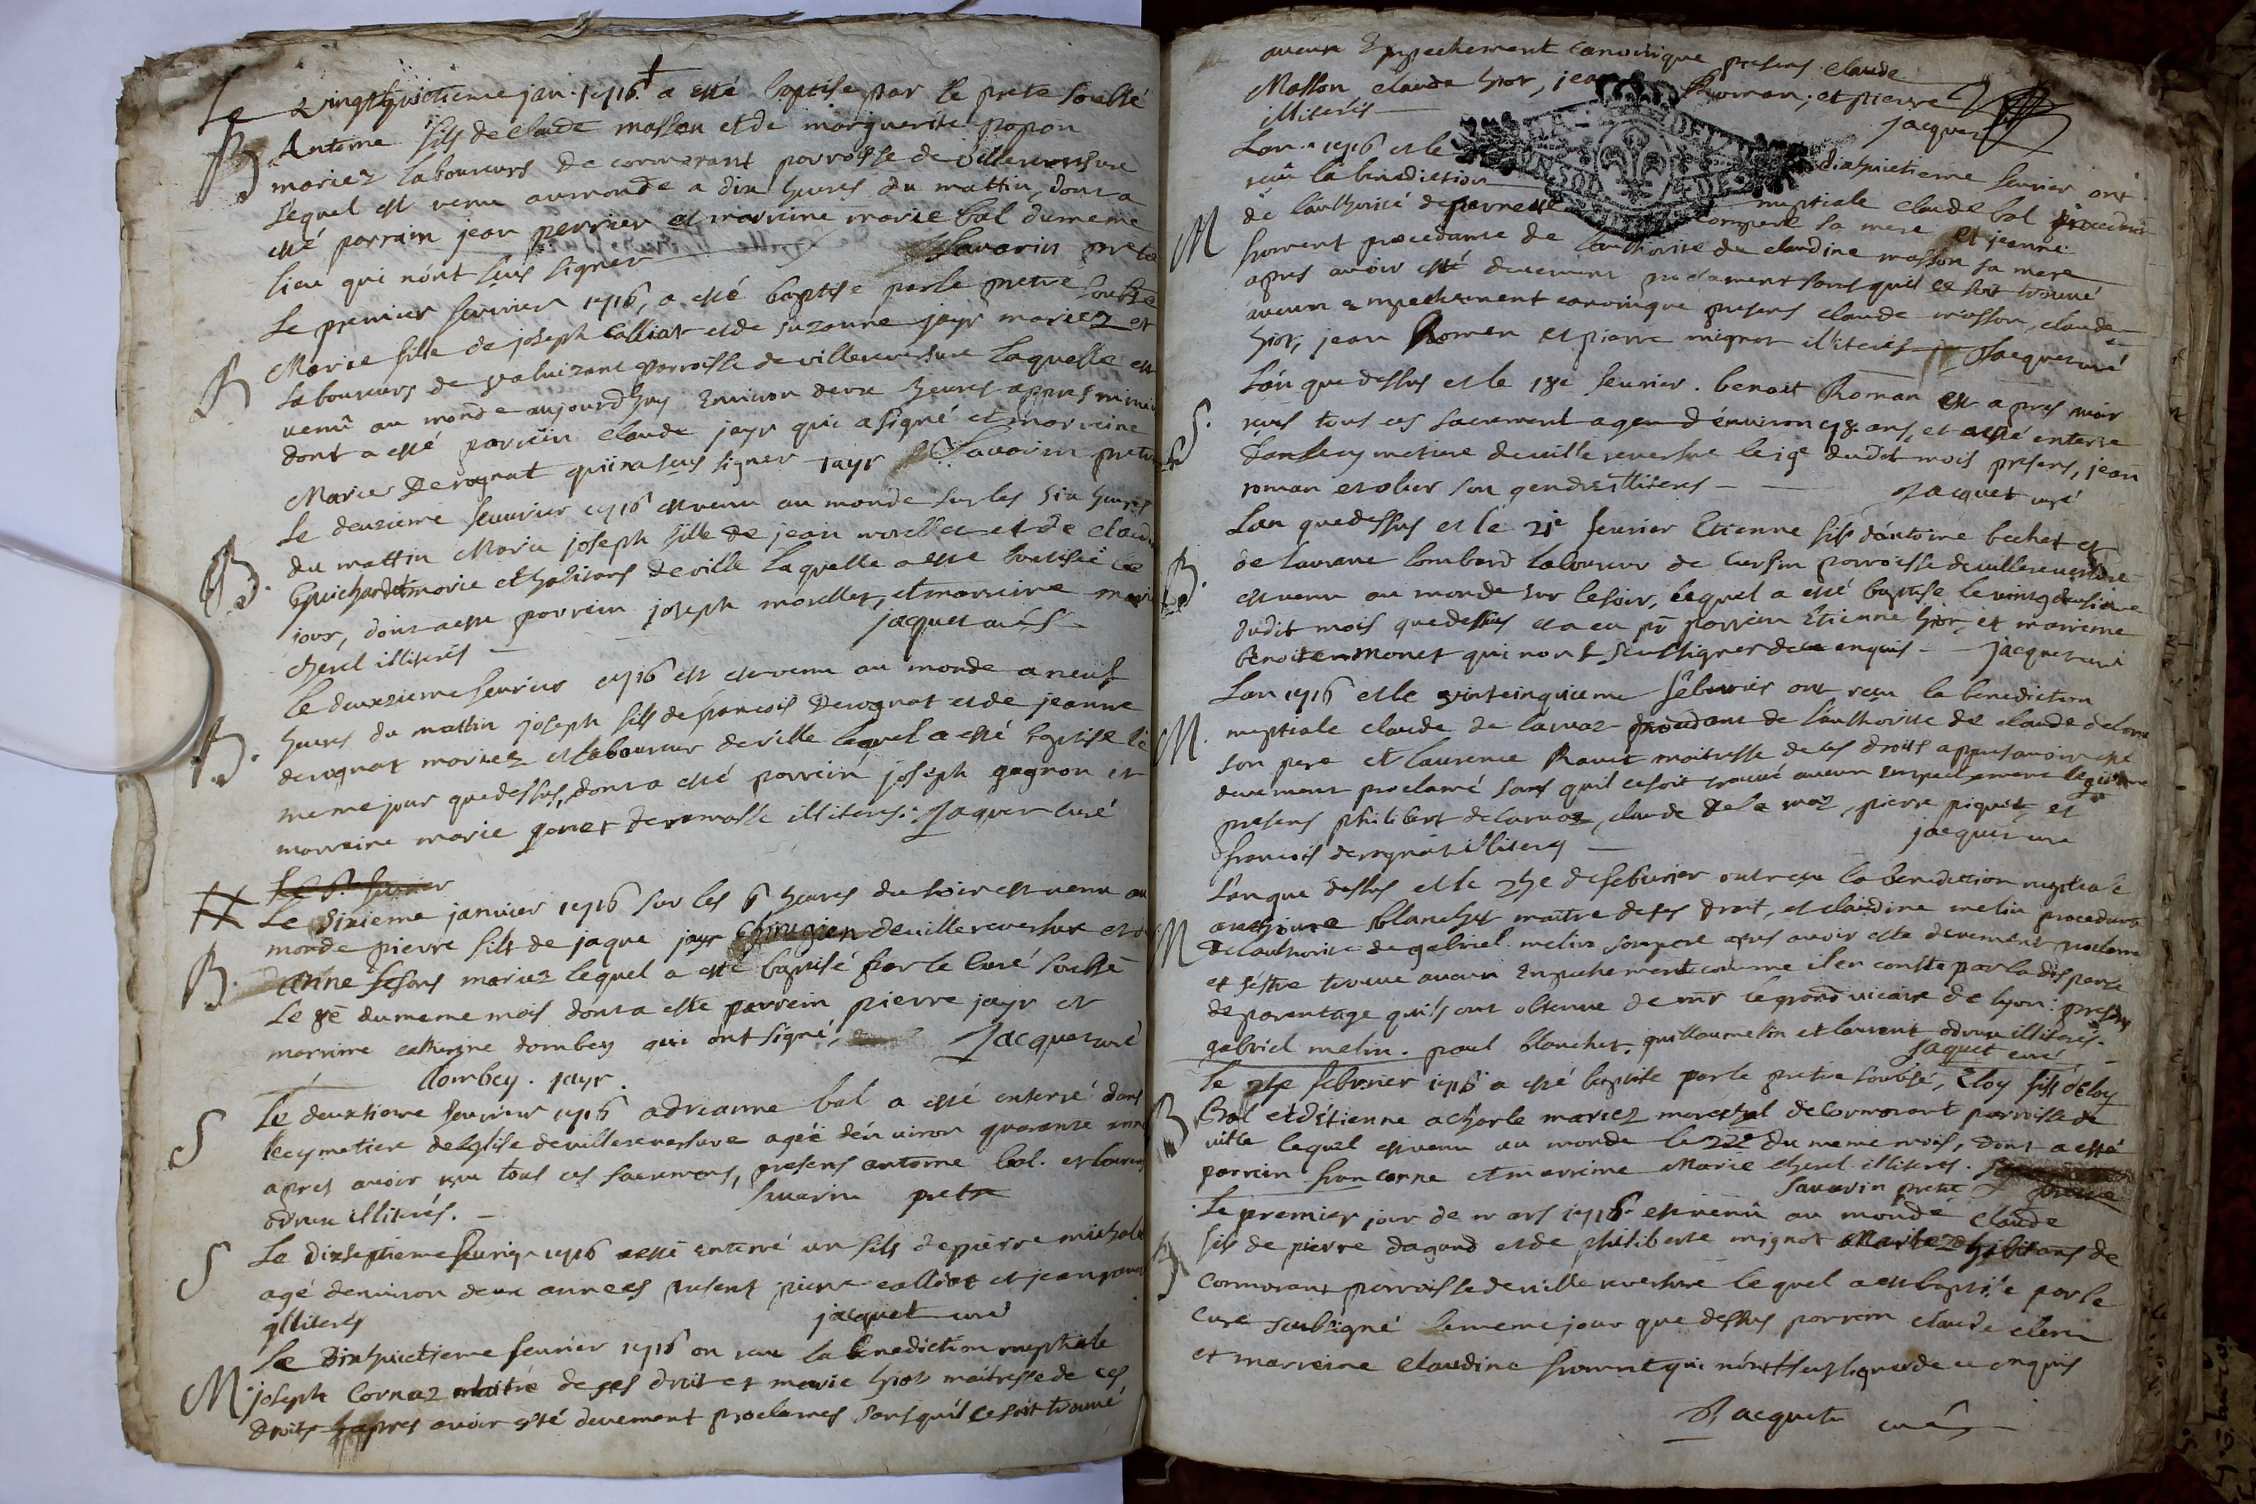 Le vingthuictieme jan. 1716. a esté baptise par le prete soussé
B Antoine fils de claude masson et de marguerite papon
mariez laboureurs de cormorant parroisse de villereversure
lequel est venu au monde a dix heures du mattin, dont a
esté parrain jean perrier et marreine marie bal du meme
lieu qui nont seus signer Savarin prete
Le premier fevrier 1716, a esté baptise par le pretre soubsé
B Marie fille de joseph calliat et de suzanne jayr mariez et
laboureurs de parroisse de villereversure laquelle est
venû au monde aujourdhuy environ deux heures apres
dont a esté parrein claude jayr qui a signé et marreine
Marie Derognat qui na seus signer jayr Savarin pretre
Le deuzieme fevrier 1716 est venu au monde sur les six heures
du mattin Marie joseph fille de jean morellet et de
B. Guichardet marie et habitans de ville laquelle a esté
jour, dont a esté parrein joseph morellet, et marreine
cherel illiterés jacquet curé
le deuxzieme fevrier 1716 est venu au monde a neuf
B. heures du mattin joseph fils de francois Derognat et de jeanne
derognat mariez et laboureur de ville lequel a esté baptise le
meme jour que dessus, dont a esté parrein joseph gagnon et
marreine marie de ramasse illiteres: Jaquet curé
Le 6e fevrier
Le Sixieme janvier 1716 sur les 6 heures du soir est venu au
monde pierre fils de jaque jayr chirugien de villereversure et
B. anne mariez lequel a esté baptisé par le curé soussé
Le 8e du meme mois dont a esté parrein pierre jayr et
marreine catherine dombey qui ont signé, Jacquet curé
dombey. jayr.
Le deuxieme fevrier 1716 adrianne bal a esté enterré dans
S le cymetiere de leglise de villereversure agée den viron quarante
apres avoir reçu tous ces sacremens, presens antoine bal. et
illiterés. Savarin pretre
S Le dixseptieme fevrier 1716 a esté enterré un fils de pierre
agé denviron deux annees present pierre calliat et jean
illiterés jacquet curé
Le Dixhuictieme fevrier 1716 on reçu la benediction nuptiale
M. joseph Cornaz maître de ses droit et marie hior maitresse de ces
droits apres avoir esté deuement proclames sans quil ce soit trouvé
aucun Empechement canonique presens claude
Masson claude hior, jean Roman, et pierre
illiterés jacquet
Lan 1716 et le dixhuictieme fevrier ont
reçû la benediction nuptiale claude bal procedant
M de lauthorité de pernette compere sa mere et jeanne
froment procedante de lauthorité de claudine masson sa mere
apres avoir esté deuement proclament sans quil ce soit trouvé
aucun empechement canonique presens claude masson, claude
hior, jean Romen et pierre mignot illiterés Jacquet curé
Lan que dessus et le 18e fevrier. benoit Roman est apres avoir
S. reçus tous ces sacrement agen d'environ ans, et a esté enterre
dans le cymetiere de villereversure le 19e dudit mois presens, jean
roman et son gendre illiterés Jacquet curé
Lan que dessus et le 21e fevrier Etienne fils dantoine bechet et
B. de laurane lombard laboureur de Cursin parroisse de villereversure
est venu au monde sur le soir, lequel a esté baptise le vingt deusieme
dudit mois que dessus et a eu pr parrein Etienne hior, et marreine
benoite monet qui nont seus signer de ce enquis jacquet curé
Lan 1716 et le vintcinquieme febvrier ont reçu la benediction
M. nuptiale claude de lavaz procedant de lauthorité de claude
son pere et laurence Ravet maitresse de ces droits apres avoir esté
deuement proclamé sans quil ce soit trouvé aucun Empechement legitime
presens philibert delavaz, claude pierre piquet, et
francois derognat illiterés jacquet curé
Lan que dessus et le 25e de febvrier ont reçu la benediction nuptiale
M antoine blanchet maître de ses droit, et claudine melin procedante
de lauthorité de gabriel melin son pere apres avoir esté deuement proclamé
et sestre trouvé aucun Empechement comme il en conste par la dispense
de parentage quils ont obtenue de mr le grand vicaire de lyon: presens
gabriel melin. paul blanchet. et laurent illiterés.
Jaquet curé
Le febvrier 1716 a esté baptise par le pretre soubsé, Eloy fils deloy
B Bal et ditienne acharle mariez de Cormorant parroisse de
ville lequel est venu au monde le 22e du meme mois, dont a esté
parrein et marreine Marie cherel illiteres.
Savarin pretre
Le premier jour de mars 1716 est venû au monde claude
B fils de pierre dagand et de philiberte mignot Mariez habitans de
Cormorant parroisse de ville reversure lequel a est baptisé par le
curé soubsigné le meme jour que dessus parrein claude
et marreine claudine froment qui nont seus signer de ce enquis
Jacquet curé